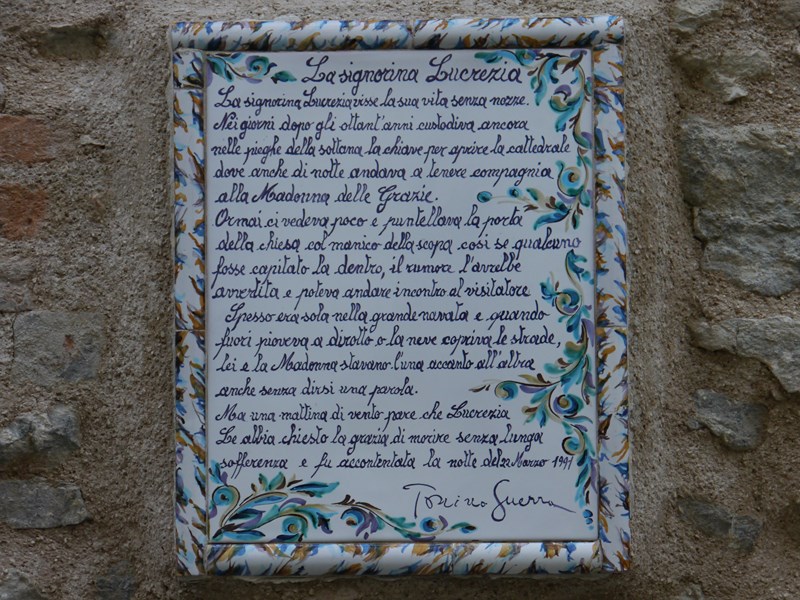 La signorina Lucrezia
La signorina Lucrezia visse la sua vita senza nozze.
Nei giorni dopo gli ottant'anni custodiva ancora
nelle pieghe della sottana la chiave per aprire la cattedrale
dove anche di notte andava a tenere compagnia
alla Madonna delle Grazie.
Ormai ci vedeva poco e puntellava la porta
della chiesa col manico della scopa così se qualcuno
fosse capitato la dentro, il rumore l'avrebbe
avvertita e poteva andare incontro al visitatore
Spesso era sola nella grande navata e quando
fuori pioveva a dirotto o la neve copriva le strade,
lei e la Madonna stavano l'una accanto all'altra
anche senza dirsi una parola.
Ma una mattina di vento pare che Lucrezia
Le abbia chiesto la grazia di morire senza lunga
sofferenza e fu accontentata la notte del 22 Marzo 1991
Tonino Guerra